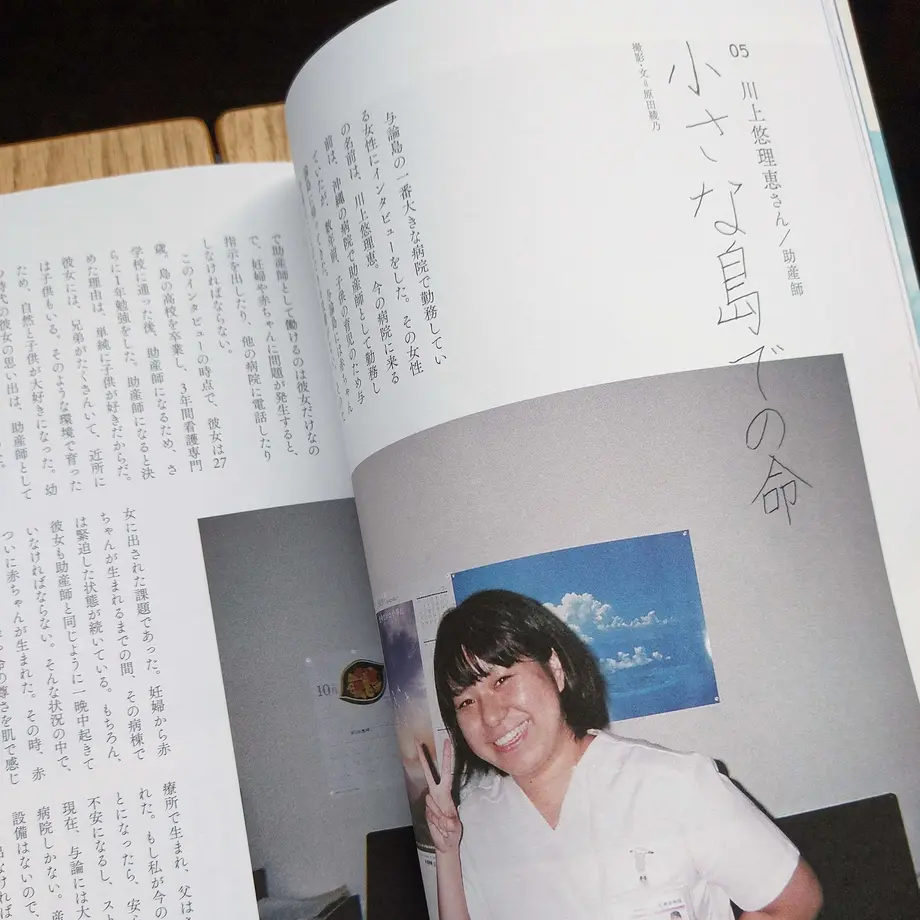 05
川上悠理恵さん/助産師
小さな島での命
撮影・文=原田綾乃
与論島の一番大きな病院で勤務してい
る女性にインタビューをした。その女性
の名前は、川上悠理恵。今の病院に来る
前は、沖縄の病院で助産師として勤務し
ていたが、数年前、子供の育児のため与
で助産師として働けるのは彼女だけなの
で、妊婦や赤ちゃんに問題が発生すると、
指示を出したり、他の病院に電話したり
しなければならない。
このインタビューの時点で、彼女は27
歳。島の高校を卒業し、3年間看護専門
学校に通った後、助産師になるため、さ
らに1年勉強をした。助産師になると決
めた理由は、単純に子供が好きだからだ。
彼女には、兄弟がたくさんいて、近所に
は子供もいる。そのような環境で育った
ため、自然と子供が大好きになった。幼
時代の彼女の思い出は、助産師として
女に出された課題であった。妊婦から赤
ちゃんが生まれるまでの間、その病棟で
は緊迫した状態が続いている。もちろん、
彼女も助産師と同じように一晩中起きて
いなければならない。そんな状況の中で、
ついに赤ちゃんが生まれた。その時、赤
命の尊さを肌で感じ
療所で生まれ、父は
れた。もし私が今の
とになったら、安
不安になるし、スト
現在、与論には大
病院しかない。産
設備はないので、
10月